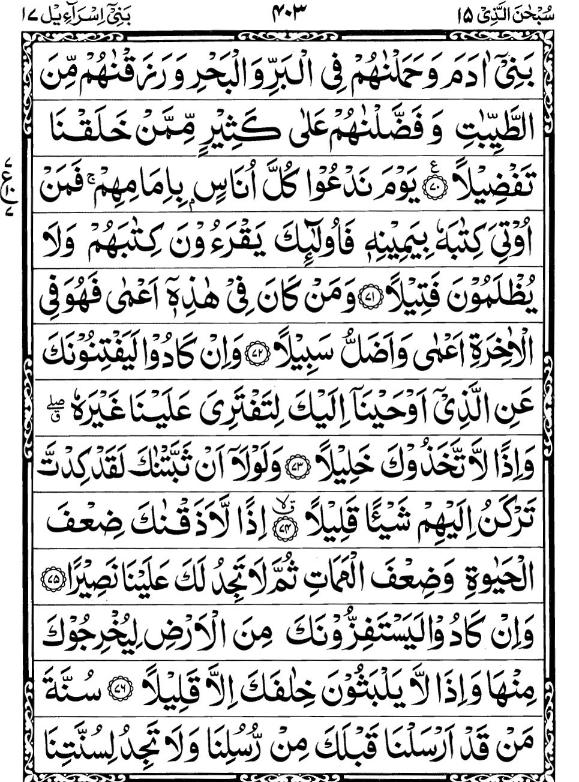 سُبْحٰنَ الَّذِیْۤ ۱۵ ۴۰۳ بَنِیْۤ اِسْرَآءِیْل ۱۷
بَنِیْۤ اٰدَمَ وَ حَمَلْنٰهُمْ فِی الْبَرِّ وَ الْبَحْرِ وَ رَزَقْنٰهُمْ مِّنَ
الطَّیِّبٰتِ وَ فَضَّلْنٰهُمْ عَلٰی كَثِیْرٍ مِّمَّنْ خَلَقْنَا
تَفْضِیْلًا ۷۰ یَوْمَ نَدْعُوْا كُلَّ اُنَاسٍۭ بِاِمَامِهِمْ ۚ فَمَنْ
اُوْتِیَ كِتٰبَهٗ بِیَمِیْنِهٖ فَاُولٰٓئِكَ یَقْرَءُوْنَ كِتٰبَهُمْ وَلَا
یُظْلَمُوْنَ فَتِیْلًا ۷۱ وَمَنْ كَانَ فِیْ هٰذِهٖۤ اَعْمٰی فَهُوَ فِی
الْاٰخِرَةِ اَعْمٰی وَ اَضَلُّ سَبِیْلًا ۷۲ وَاِنْ كَادُوْا لَیَفْتِنُوْنَكَ
عَنِ الَّذِیْۤ اَوْحَیْنَاۤ اِلَیْكَ لِتَفْتَرِیَ عَلَیْنَا غَیْرَهٗ ۖق
وَاِذًا لَّا تَّخَذُوْكَ خَلِیْلًا ۷۳ وَلَوْلَاۤ اَنْ ثَبَّتْنٰكَ لَقَدْ كِدْتَّ
تَرْكَنُ اِلَیْهِمْ شَیْـًٔا قَلِیْلًا ۷۴ اِذًا لَّاَذَقْنٰكَ ضِعْفَ
الْحَیٰوةِ وَضِعْفَ الْمَمَاتِ ثُمَّ لَا تَجِدُ لَكَ عَلَیْنَا نَصِیْرًا ۷۵
وَاِنْ كَادُوْا لَیَسْتَفِزُّوْنَكَ مِنَ الْاَرْضِ لِیُخْرِجُوْكَ
مِنْهَا وَاِذًا لَّا یَلْبَثُوْنَ خِلٰفَكَ اِلَّا قَلِیْلًا ۷۶ سُنَّةَ
مَنْ قَدْ اَرْسَلْنَا قَبْلَكَ مِنْ رُّسُلِنَا وَلَا تَجِدُ لِسُنَّتِنَا